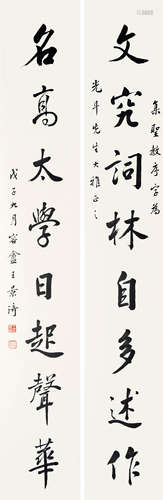 集聖教序字為
光斗先生大雅正之
文究詞林自多述作
名高太學日起聲華
戊子九月容盦王景